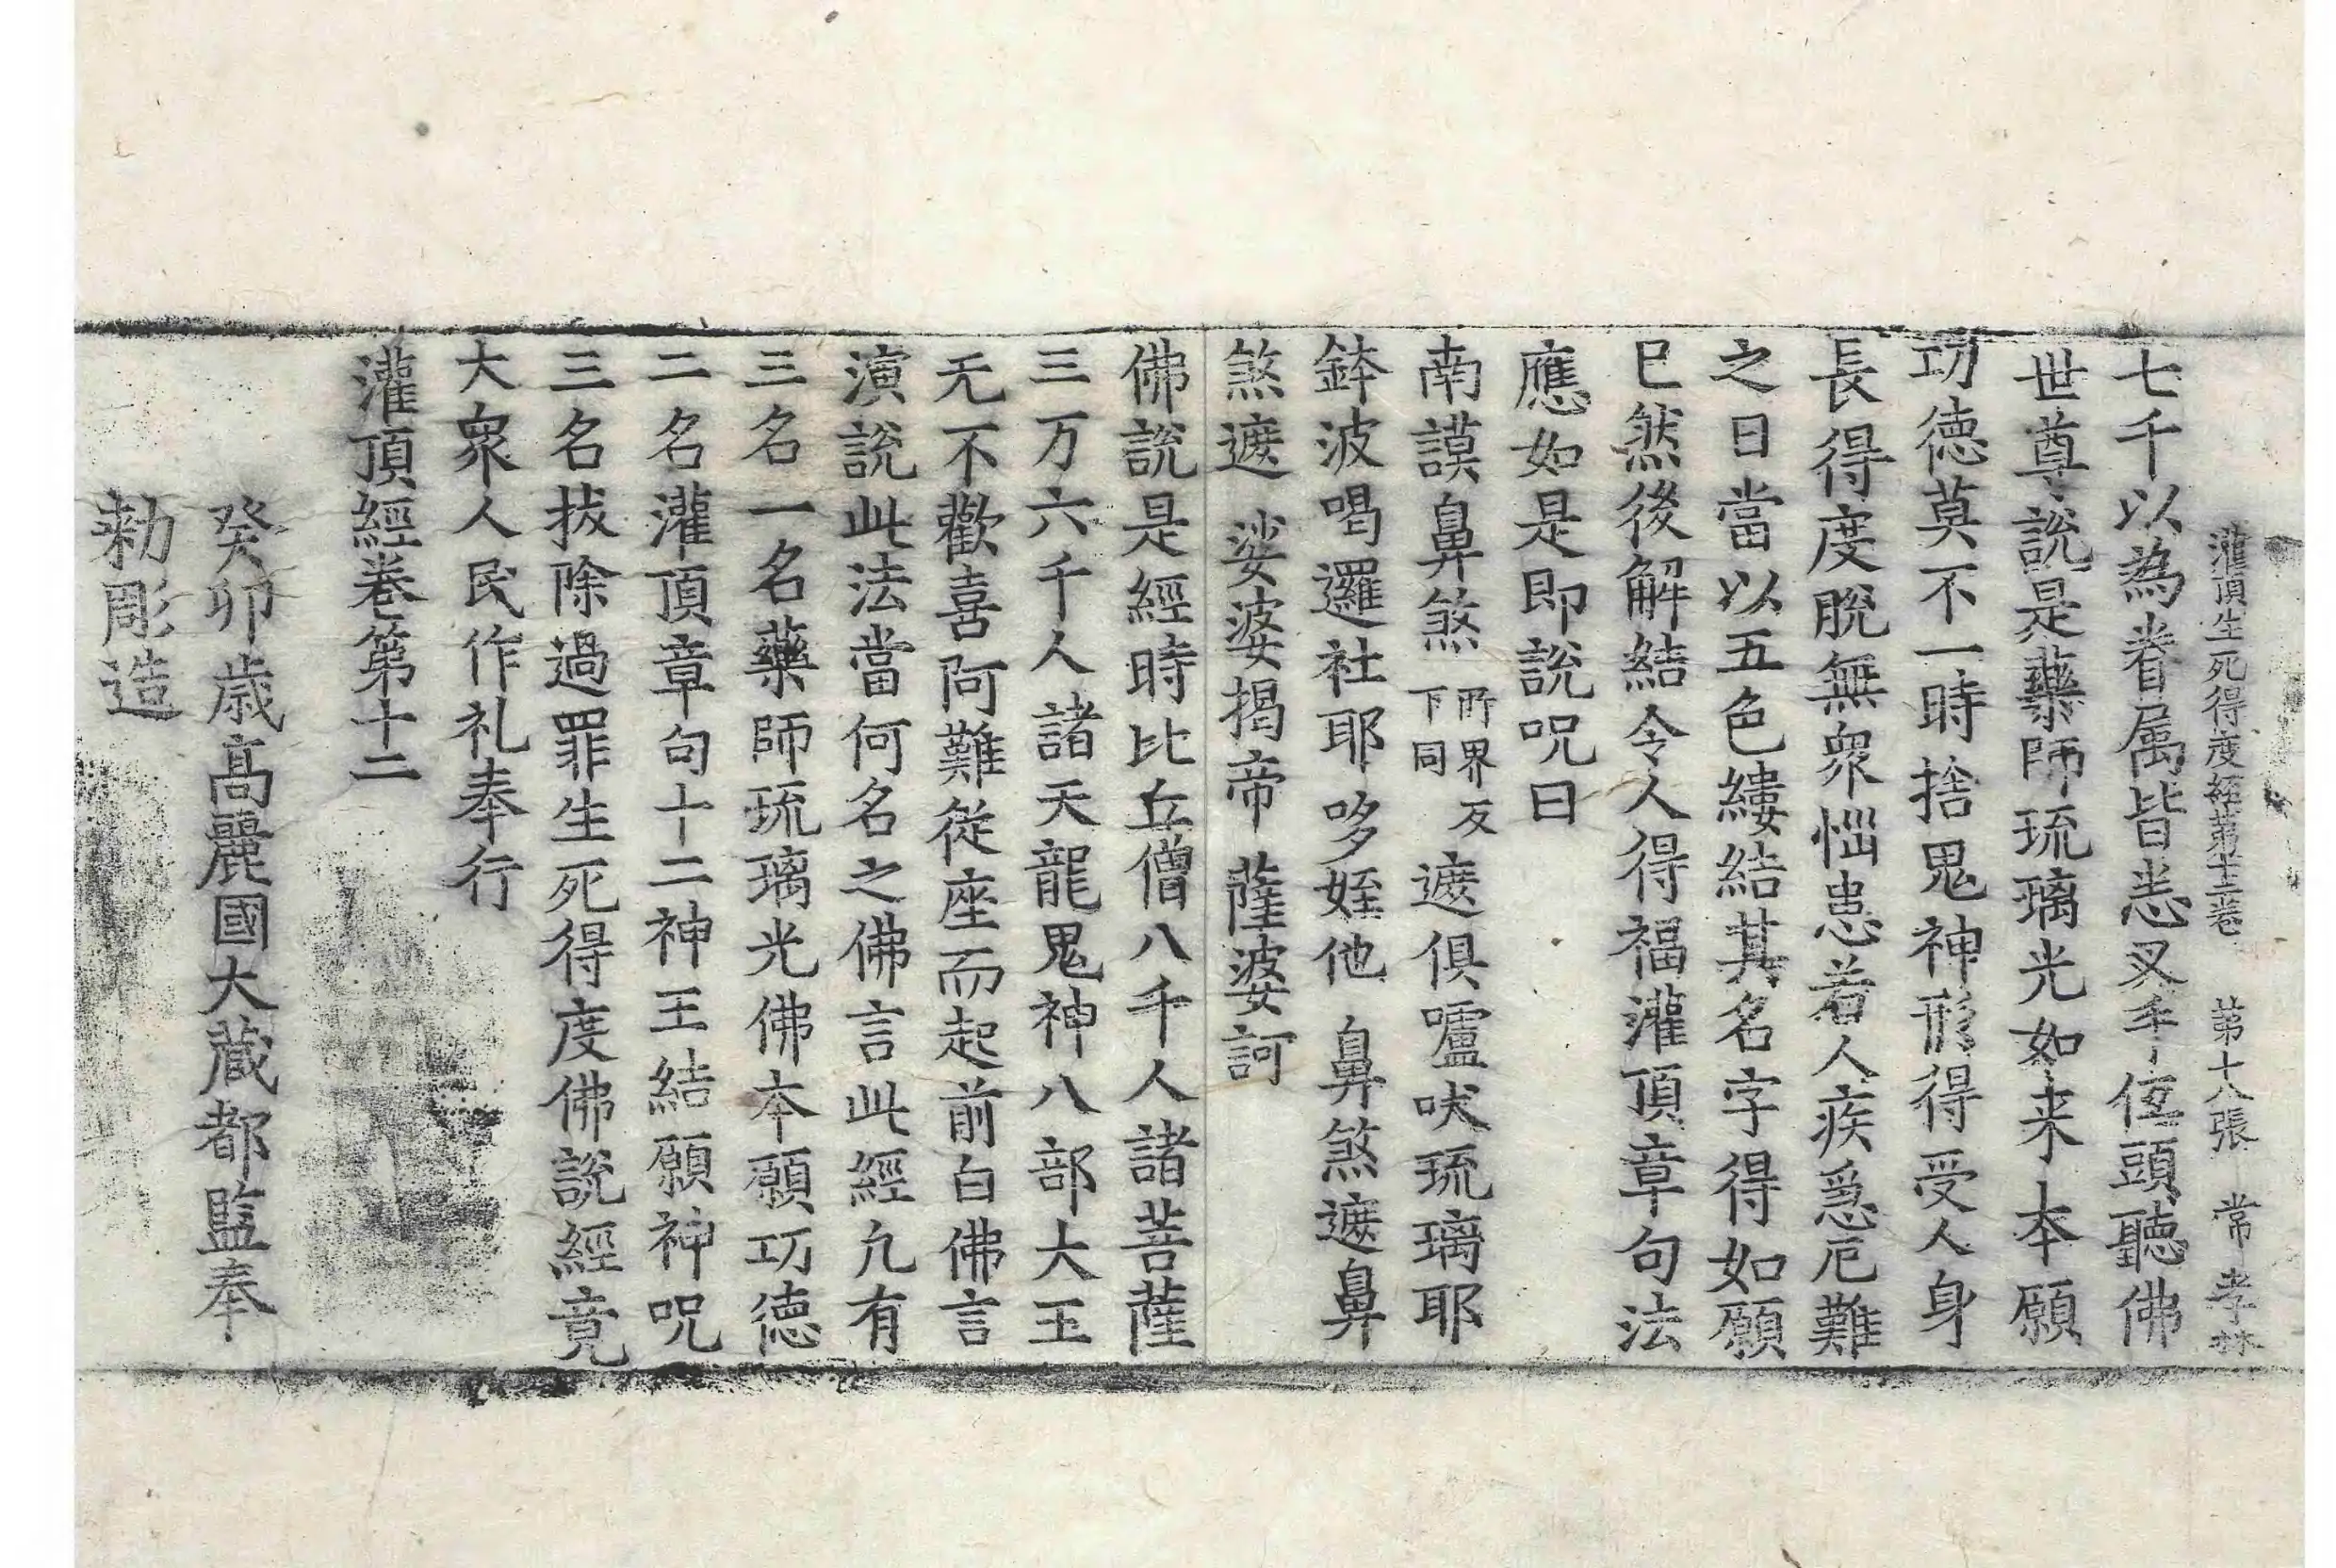 灌頂生死得度經第十二卷 第十八張 常 孝林
七千以為眷属皆悉叉手佂頭聽佛
世尊說是藥師琉璃光如来夲願
功德莫不一時捨鬼神形得受人身
長得度脫無衆惱患若人疾急厄難
之日當以五色縷結其名字得如願
已然後解結令人得福灌頂章句法
應如是即說呪曰
南謨鼻煞所界反下同遮俱嚧吠琉璃耶
鉢波喝邏社耶哆姪他 鼻煞遮鼻
煞遮 娑婆揭帝 薩婆訶
佛說是經時比丘僧八千人諸菩薩
三万六千人諸天龍鬼神八部大王
无不歡喜阿難從座而起前白佛言
演說此法當何名之佛言此經凢有
三名一名藥師琉璃光佛夲願功德
二名灌頂章句十二神王結願神呪
三名拔除過罪生死得度佛說經竟
大衆人民作礼奉行
灌頂經卷第十二
癸卯歲髙麗國大藏都監奉
勅彫造